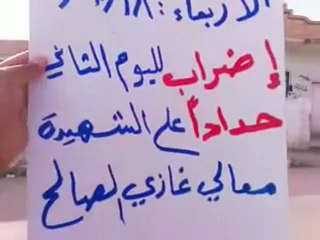 الاربعاء :
إضراب لليوم الثاني
حداداً على الشهيدة
معالي غازي الصالح